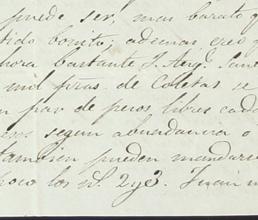 puede ser, mas barato q
tido bonito; ademas creo q
hora bastante
mil pzas. de Coletas se
n par de pesos libres cada
segun abundancia o
tambien pueden mandarse
poco los nº. 2y3.